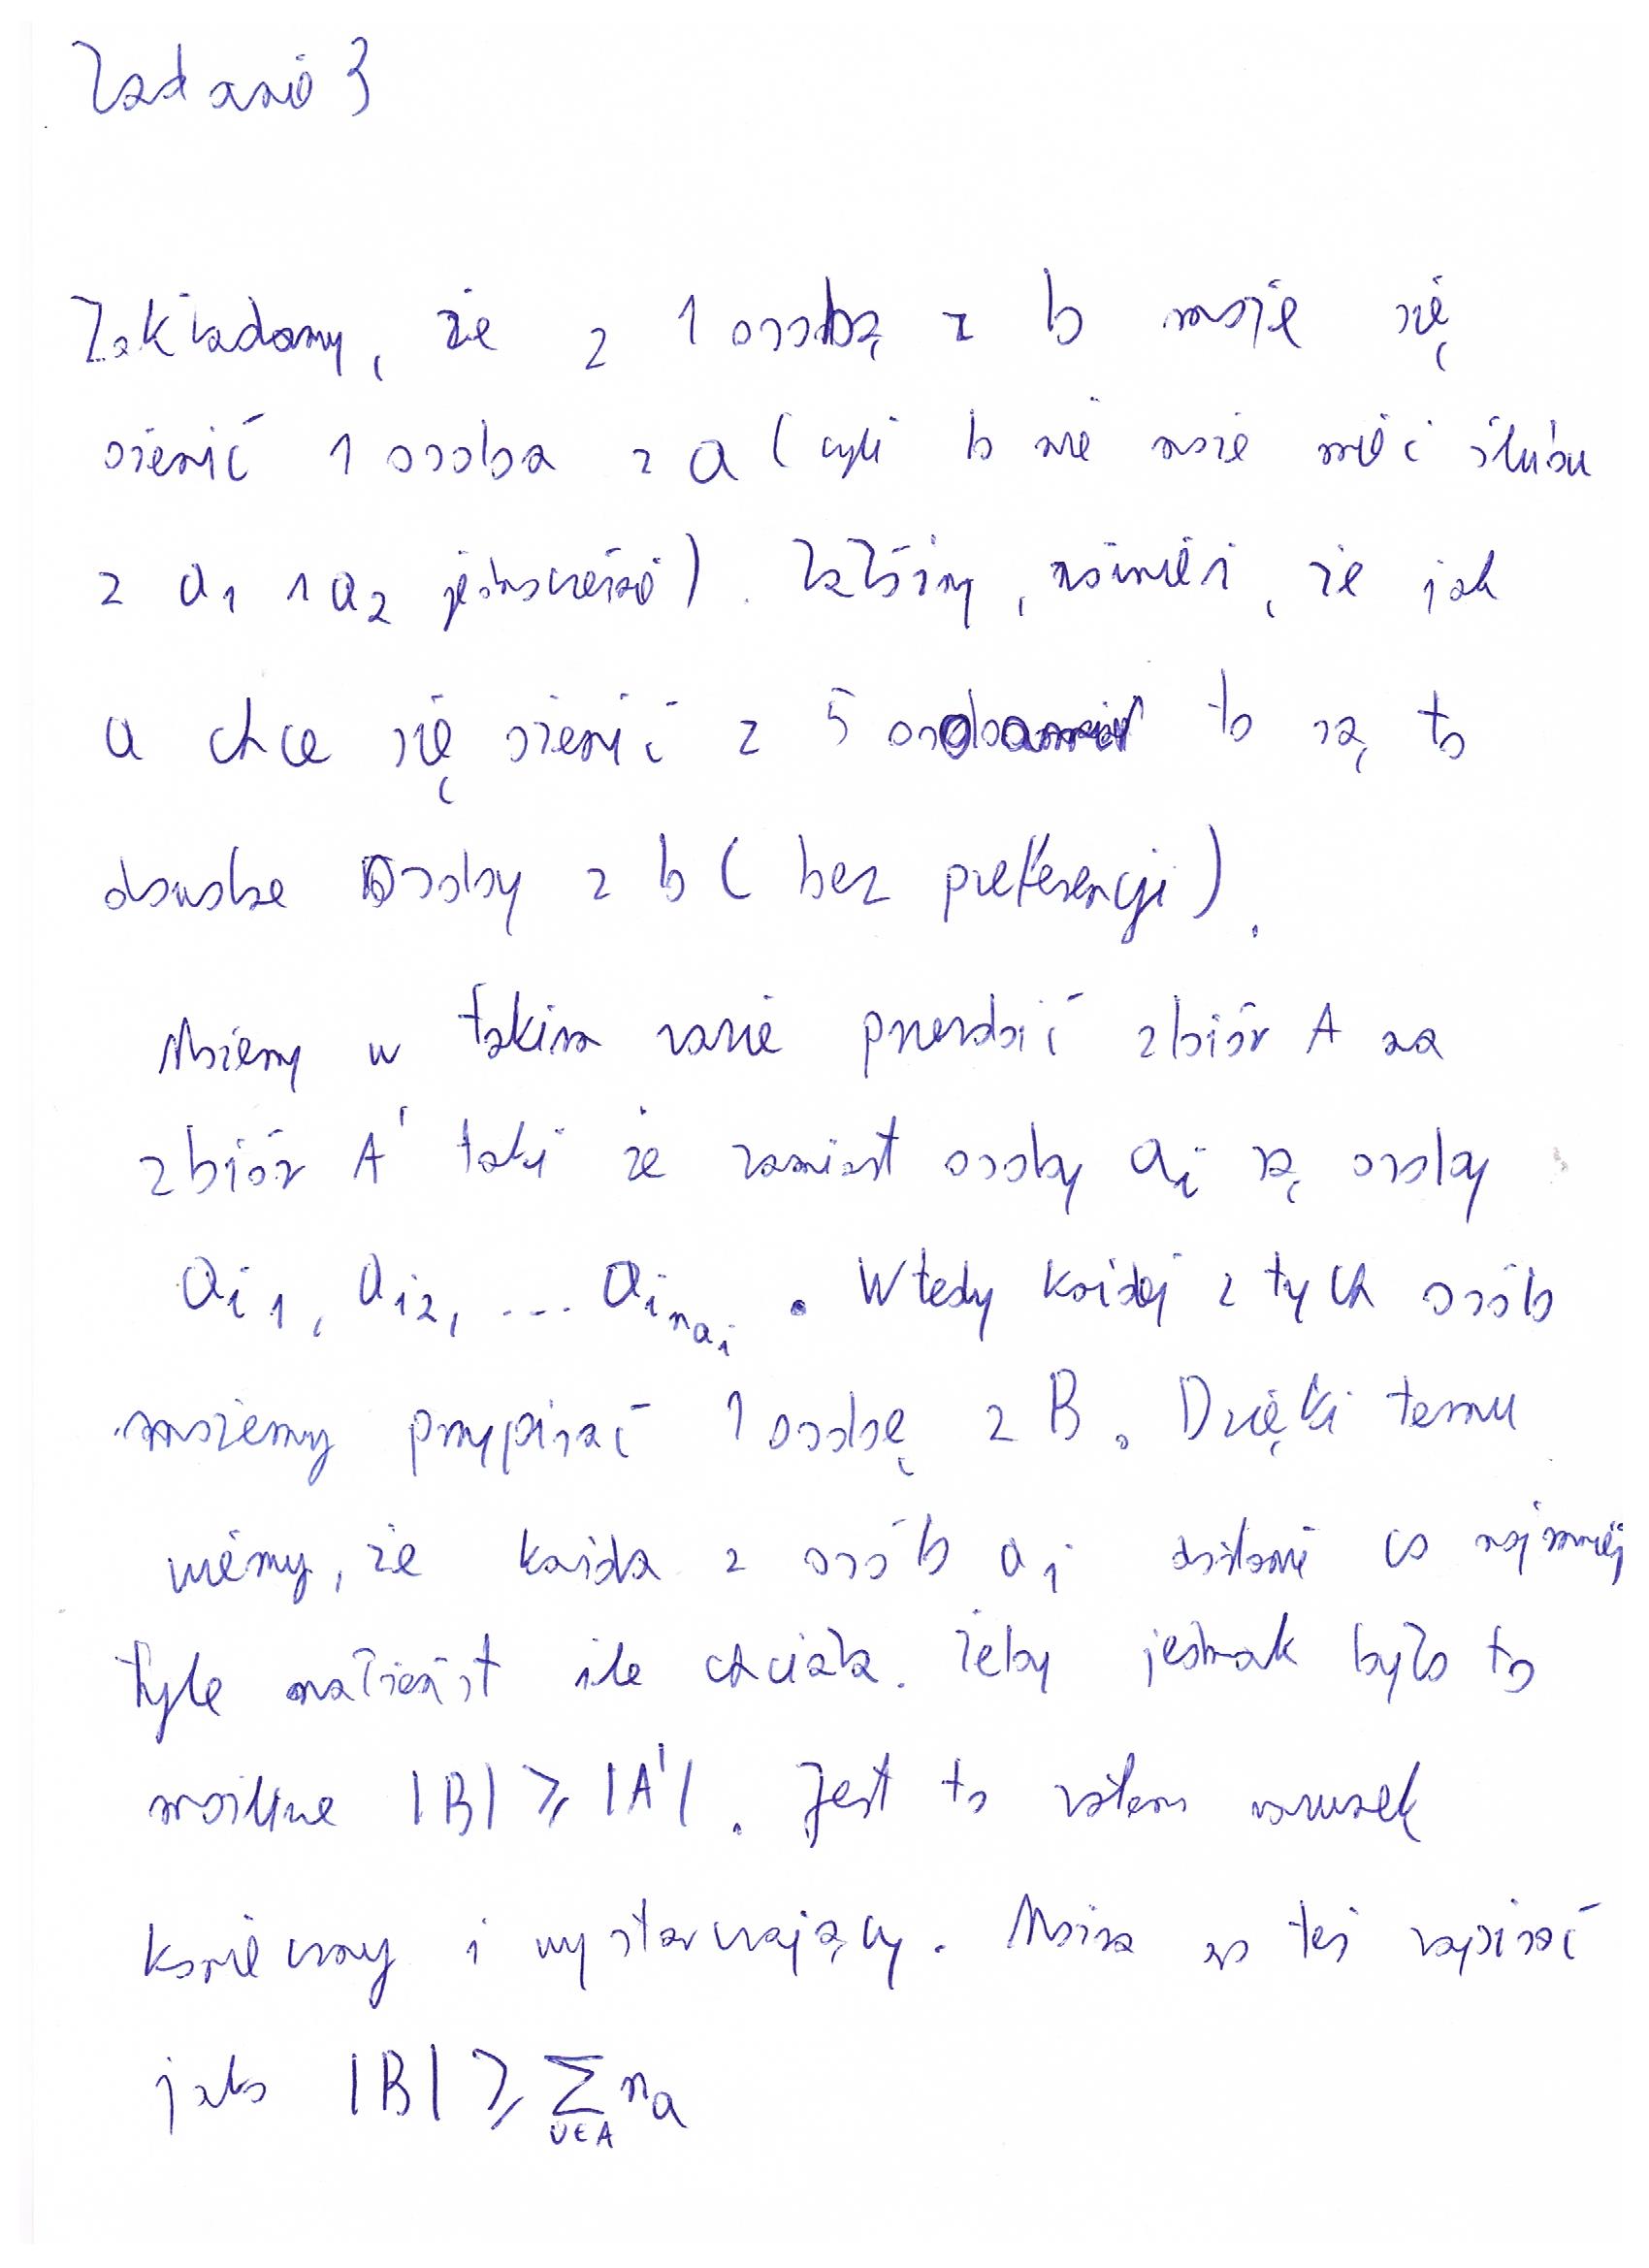 Zadanie 3
Zakładamy, że z 1 osobą z b może się
ożenić 1 osoba z a (czyli b nie może mieć ślubu
z a₁ i a₂ jednocześnie). Załóżmy, również, że jak
a chce się ożenić z 5 osobami to są to
dowolne osoby z b (bez preferencji).
Możemy w takim razie przerobić zbiór A na
zbiór A' taki że zamiast osoby aᵢ są osoby
aᵢ₁, aᵢ₂, ... aᵢₙₐᵢ. Wtedy każdej z tych osób
możemy przypisać 1 osobę z B. Dzięki temu
wiemy, że każda z osób aᵢ dostanie co najmniej
tyle małżeństw ile chciała. Żeby jednak było to
możliwe |B| ⩾ |A'|. Jest to zatem warunek
konieczny i wystarczający. Można to też zapisać
jako |B| ⩾ ∑ nₐ